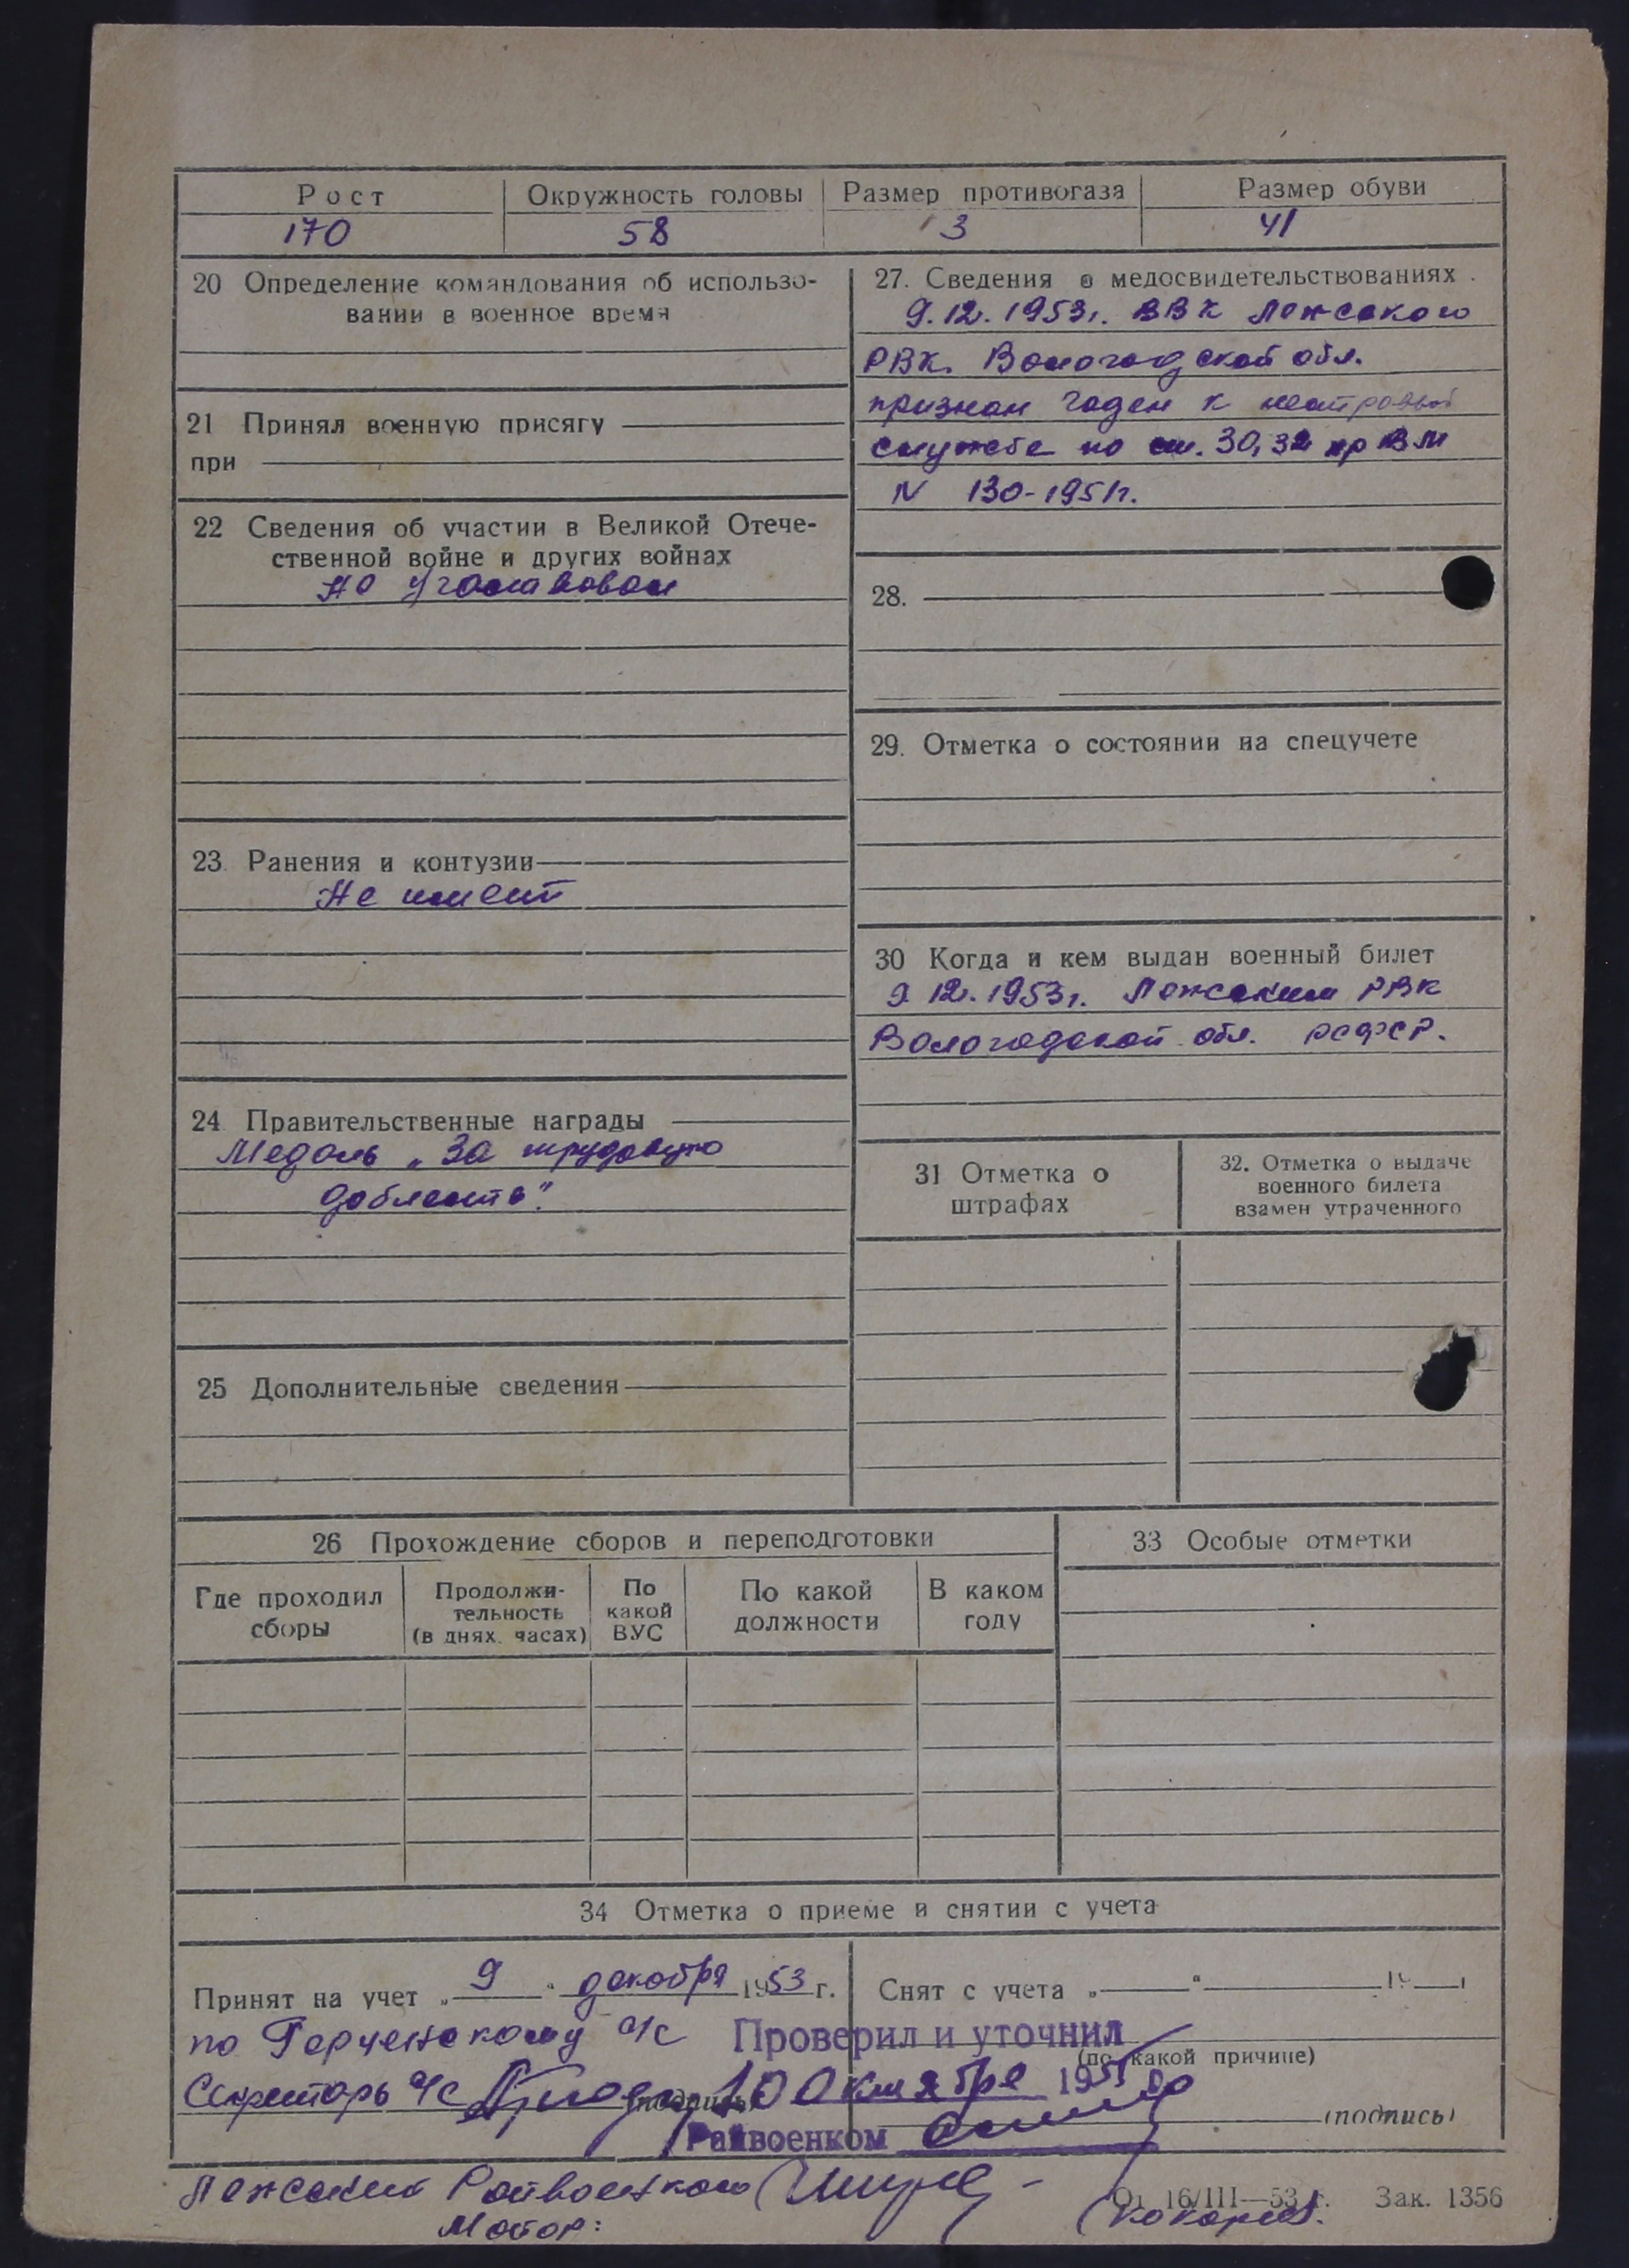 Рост Окружность головы Размер противогаза Размер обуви
170 58 3 41
20 Определение командования об использо-
вании в военное время
21 Принял военную присягу
при
22 Сведения об участии в Великой Отече-
ственной войне и других войнах
Не участвовал
23. Ранения и контузии
Не имеет
24 Правительственные награды
Медаль „За трудовую
доблесть".
25 Дополнительные сведения
27. Сведения о медосвидетельствованиях
9.12.1953г. ВВК Лежского
РВК. Вологодской обл.
признан годен к нестроевой
службе по ст. 30,32 пр ВМ
N 130-1951г.
28.
29. Отметка о состоянии на спецучете
30 Когда и кем выдан военный билет
9.12.1953г. Лежским РВК
Вологодской обл. РСФСР.
31 Отметка о
штрафах
32. Отметка о выдаче
военного билета
взамен утраченного
26 Прохождение сборов и переподготовки
Где проходил
сборы
Продолжи-
тельность
(в днях. часах)
По
какой
ВУС
По какой
должности
В каком
году
33 Особые отметки
34 Отметка о приеме и снятии с учета
Принят на учет „ 9 " декабря 1953 г. Снят с учета „ " 19 г.
по с/с Проверил и уточнил
(по какой причине)
Секретарь с/с (подпись) 10 Октября 195
Райвоенком (подпись)
Лежский Райвоенком
Майор:
От 16/III—53 г. Зак. 1356